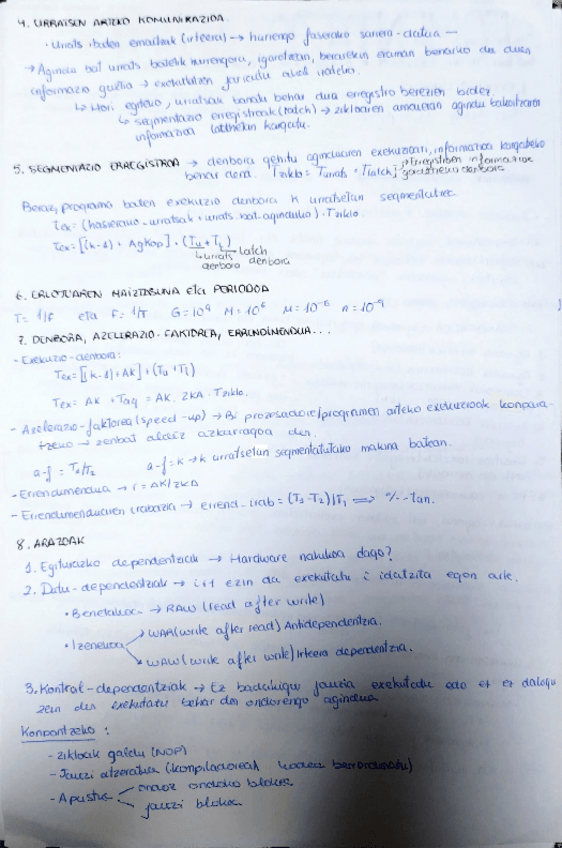 4. URRATSEN ARTEKO KOMUNIKAZIOA
· Urrats baten emaitzak (irteera) → hurrengo faserako sarrera-datua —
→ Agindu bat urrats batetik hurrengora, igarotzean, berarekin eraman beharko da duen
informazio guztia → exekutatzen jarraitu ahal izateko.
↳ Hori egiteko, urratsak banatu behar dira erregistro berezien bidez.
↳ segmentazio erregistroak (latch) → zikloaren amaieran agindu bakoitzaren
informazioa latchetan kargatu.
5. SEGMENTAZIO ERREGISTROA → denbora gehitu aginduaren exekuzioari, informazioa kargatzeko
behar dena. Tziklo = Turrats + Tlatch → erregistroen informazioa
gordetzeko denbora
Beraz, programa baten exekuzio denbora k urratsetan segmentatuz
Tex = (hasierako-urratsak + urrats-bat-aginduko) · Tziklo.
Tex = [(k-1) + AgKop] · (Tu + TL)
↳ urrats denbora latch denbora
6. ERLOJUAREN MAIZTASUNA eta PERIODOA
T = 1/F eta F = 1/T G = 10⁹ M = 10⁶ μ = 10⁻⁶ n = 10⁻⁹
7. DENBORA, AZELERAZIO-FAKTOREA, ERRENDIMENDUA...
- Exekuzio-denbora:
Tex = [(k-1) + AK] · (Tu + TL)
Tex = AK · Tag = AK · ZKA · Tziklo.
- Azelerazio-faktorea (speed-up) → Bi prozesadore/programen arteko exekuzioak konpara-
tzeko → zenbat aldiz azkarragoa den.
a-f = T1/T2 a-f = k → k urratsetan segmentatutako makina batean.
- Errendimendua → r = AK/ZKA
- Errendimenduaren irabazia → errend-irab = (T1 - T2)/T1 ⟹ %-tan.
8. ARAZOAK
1. Egiturazko dependentziak → Hardware nahikoa dago?
2. Datu-dependentziak → i+1 ezin da exekutatu i idatzita egon arte.
· Benetakoa → RAW (read after write)
· Izenekoa → WAR (write after read) Antidependentzia.
→ WAW (write after write) Irteera dependentzia.
3. Kontrol-dependentziak → Ez badakigu jauzia exekutatu edo ez ez dakigu
zein den exekutatu behar den ondorengo agindua
Konpontzeko:
- zikloak galdu (NOP)
- Jauzi atzeratua (konpiladoreak kodea berrordenatu)
- Apustua ondoz ondoko blokea
jauzi blokea